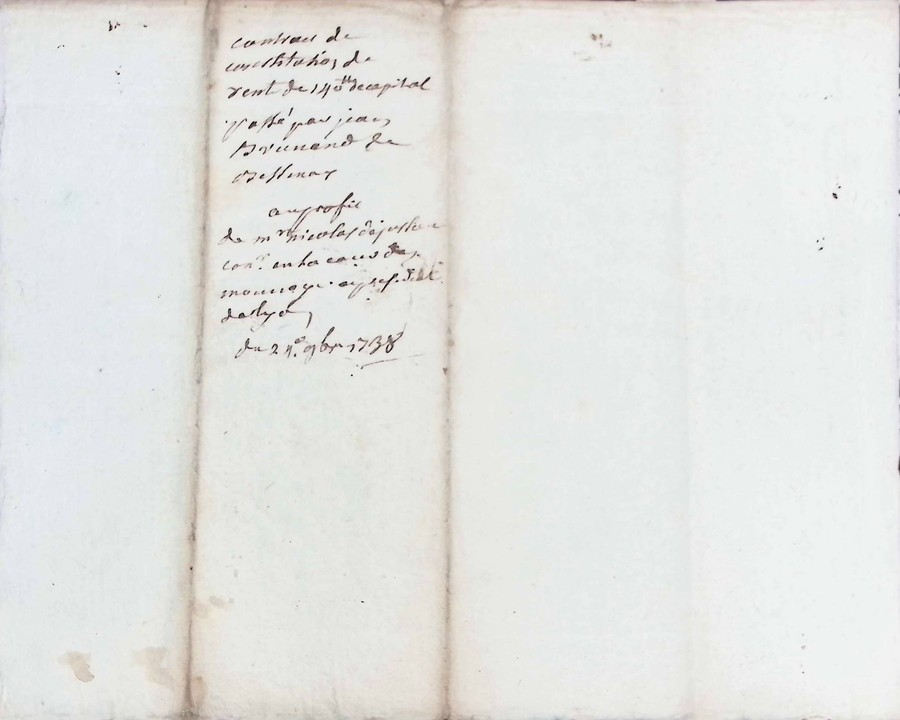 contract de
constitution de
rent de 140ᵗᵗ de capital
passé par jean
Brunand de
au profit
de mʳ nicolas dejussieu
conˢ. en la cour des
monnoye
de lyon
du 24ᵉ 9bre 1738